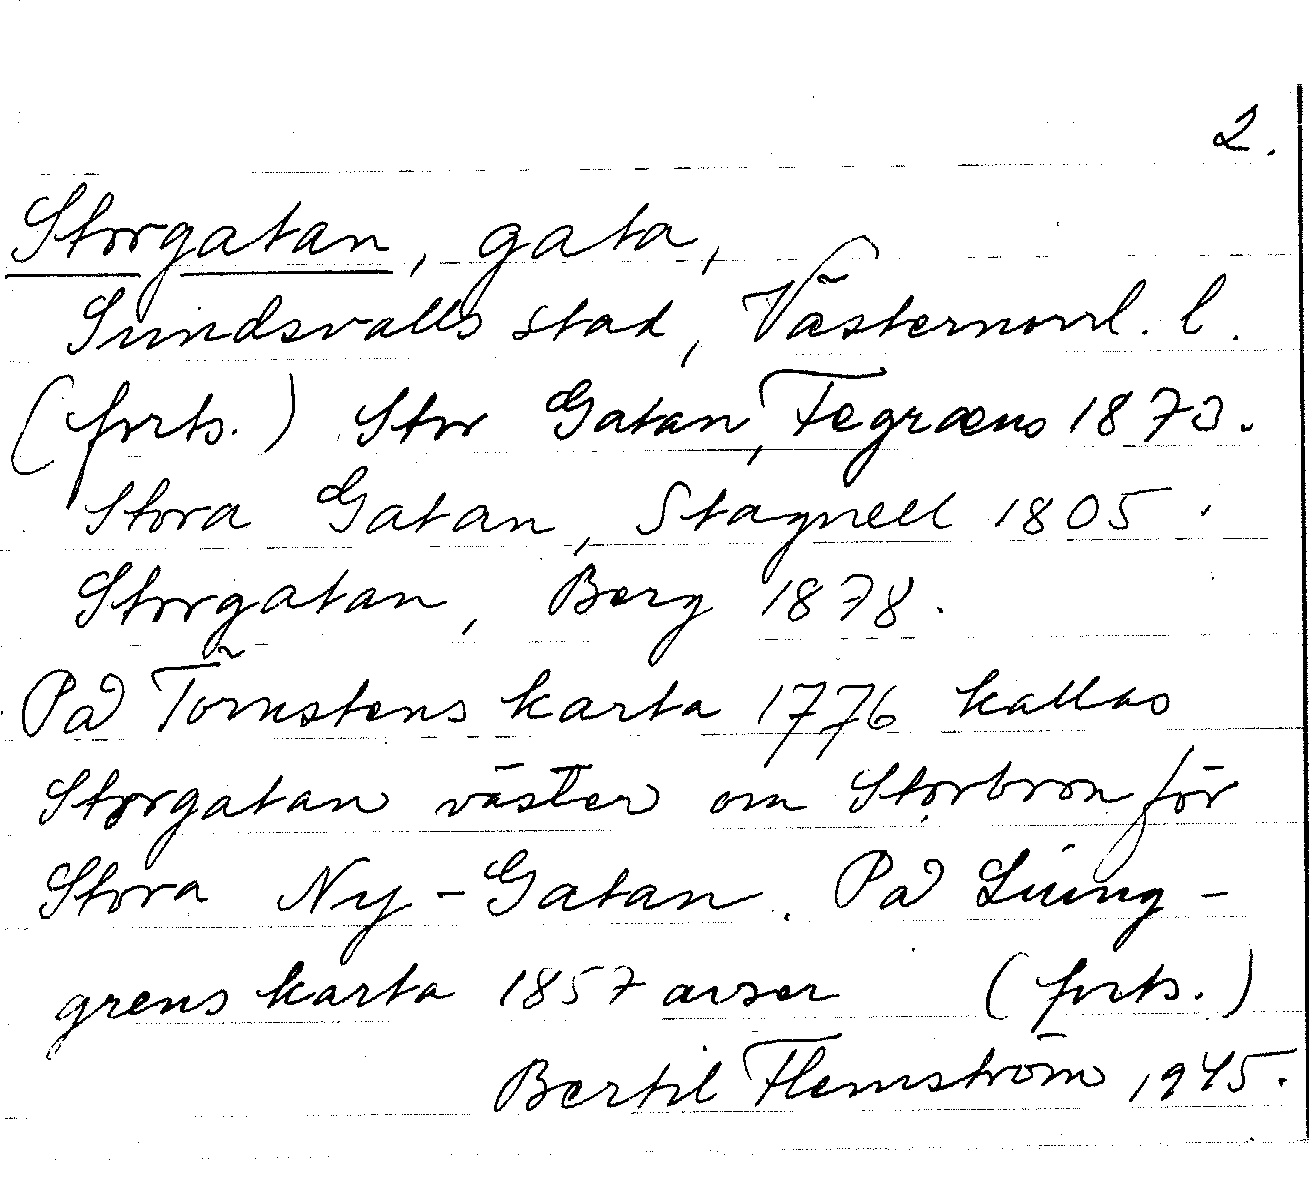 2.
Storgatan, gata,
Sundsvalls stad, Västernorrl. l.
(forts.) Stor Gatan, Tegræus 1873.
Stora Gatan, Stagnell 1805.
Storgatan, Berg 1878.
På Törnstens karta 1776 kallas
Storgatan väster om Storbron för
Stora Ny-Gatan. På Ljung-
grens karta 1857 avser (forts.)
Bertil Flemström 1945.